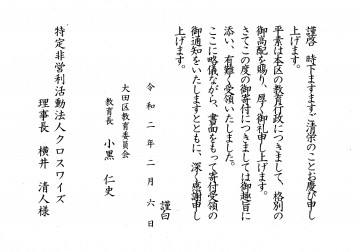 謹啓　時下ますますご清栄のこととお慶び申し
上げます。
平素は本区の教育行政につきまして、格別の
御高配を賜り、厚く御礼申し上げます。
さてこの度の御寄付につきましては御趣旨に
添い、有難く受領いたしました。
ここに略儀ながら、書面をもって寄付受領の
御通知をいたしますとともに、深く感謝申し
上げます。
謹白
令和二年二月六日
大田区教育委員会
教育長　小黒　仁史
特定非営利活動法人クロスワイズ
理事長　横井　清人様